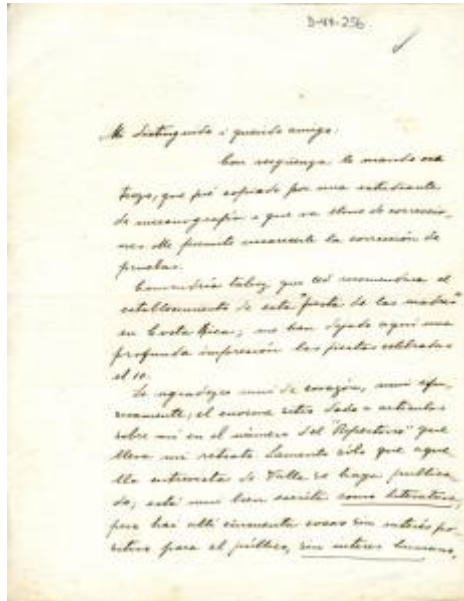 D-44-256
Mi distinguido i querido amigo:
Con vergüenza le mando ese
trozo, que fué copiado por una estudiante
de mecanografía i que va lleno de correccio-
nes. Me permito encarecerle la corrección de
pruebas.
Convendría talvez que Ud recomendara el
establecimiento de esta "fiesta de las madres"
en Costa Rica; me han dejado aquí una
profunda impresión las fiestas celebradas
el 10.
Le agradezco mui de corazón, mui
el enorme sitio dado a artículos
sobre mí en el número del "Repertorio" que
lleva mi retrato. Lamento sólo que aque-
lla entrevista de Valle se haya publica-
do; está mui bien escrita como literatura,
pero hai allí cincuenta cosas sin interés po-
sitivo para el público, sin interés humano,